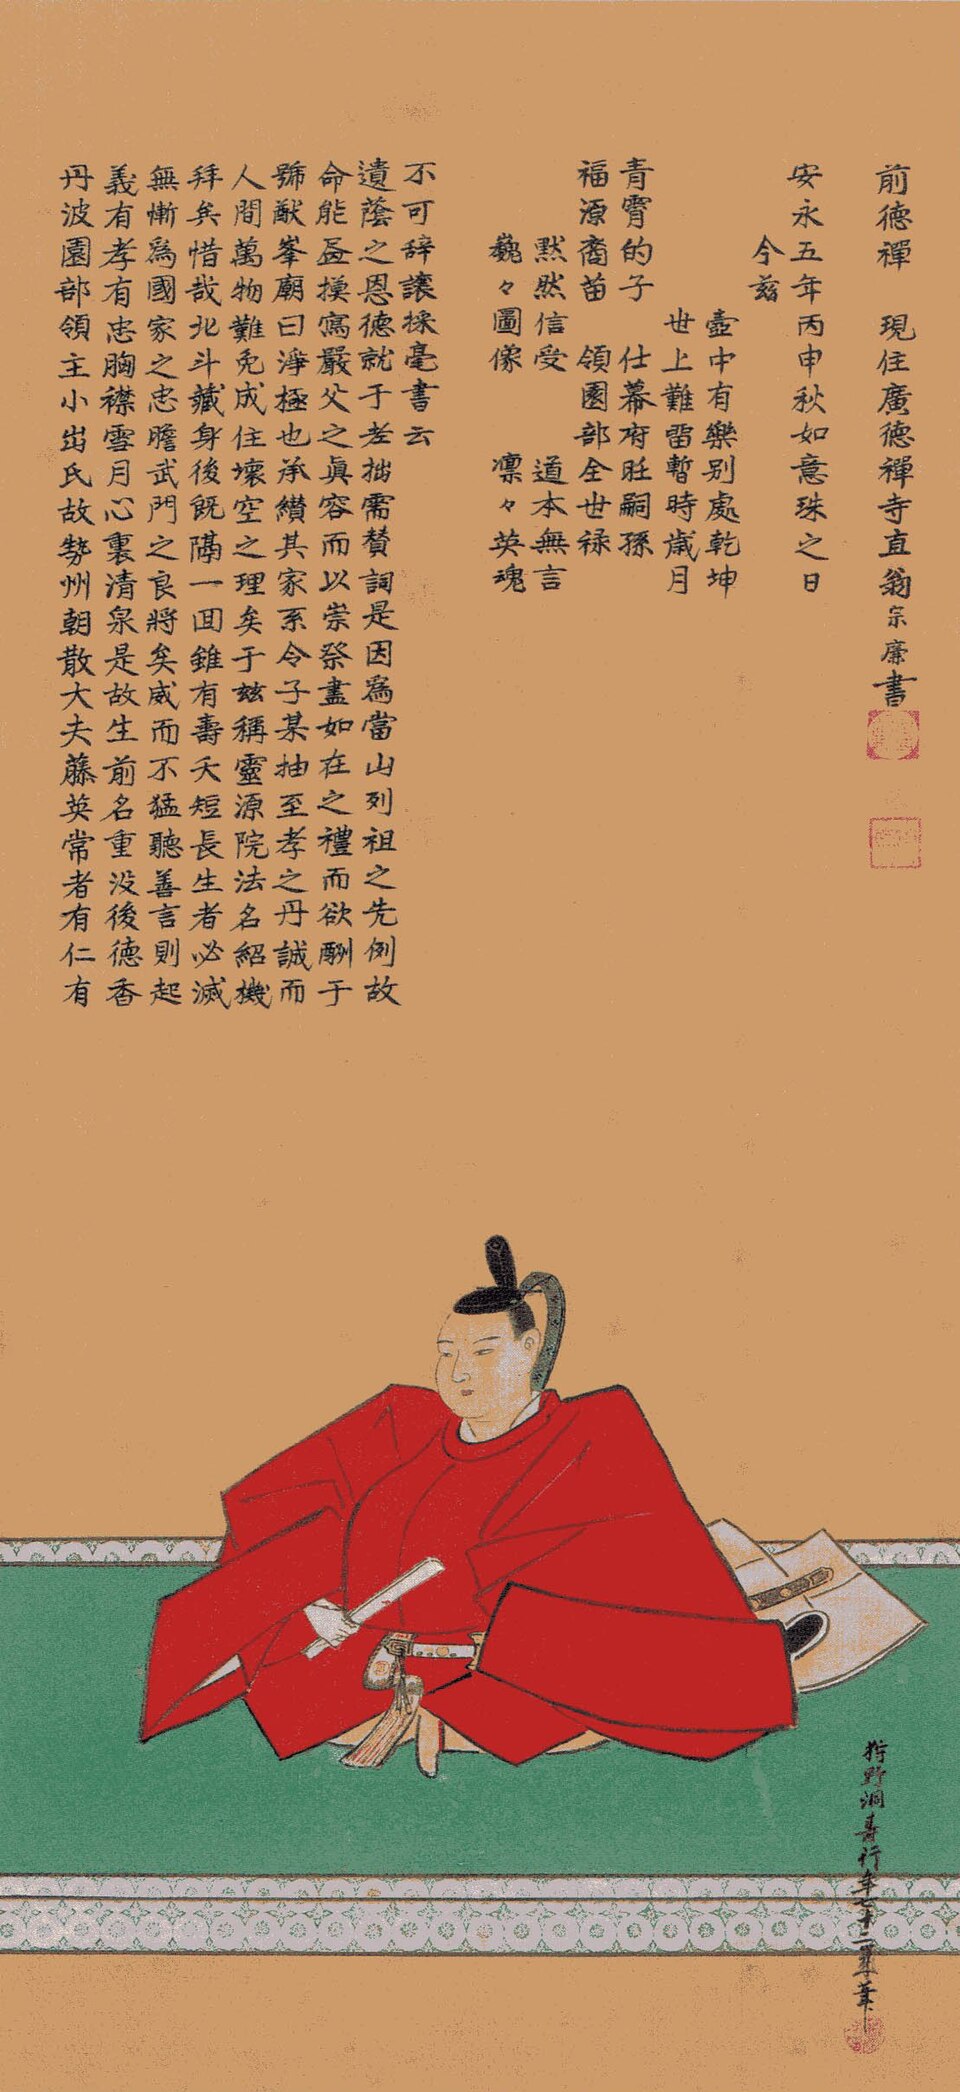 丹波園部領主小出氏故勢州朝散大夫藤英常者有仁有
義有孝有忠胸襟雪月心裏清泉是故生前名重没後德香
無慚爲國家之忠膽武門之良將矣威而不猛聽善言則起
拜矣惜哉北斗藏身後既隔一回雖有壽夭短長生者必滅
人間萬物難免成住壞空之理矣于玆稱靈源院法名紹機
號猷峯廟曰淨極也承纉其家系令子某抽至孝之丹誠而
命能畫摸寫嚴父之眞容而以崇祭盡如在之禮而欲酬于
遺蔭之恩德就于老拙需賛詞是因爲當山列祖之先例故
不可辞讓採毫書云
巍々圖像 凛々英魂
默然信受 道本無言
福源裔苗 領園部全世祿
青霄的子 仕幕府旺嗣孫
世上難留暫時歳月
壺中有樂別處乾坤
今玆
安永五年丙申秋如意珠之日
前德禪 現住廣德禪寺直翁宗廉書
狩野洞壽行年七十二筆